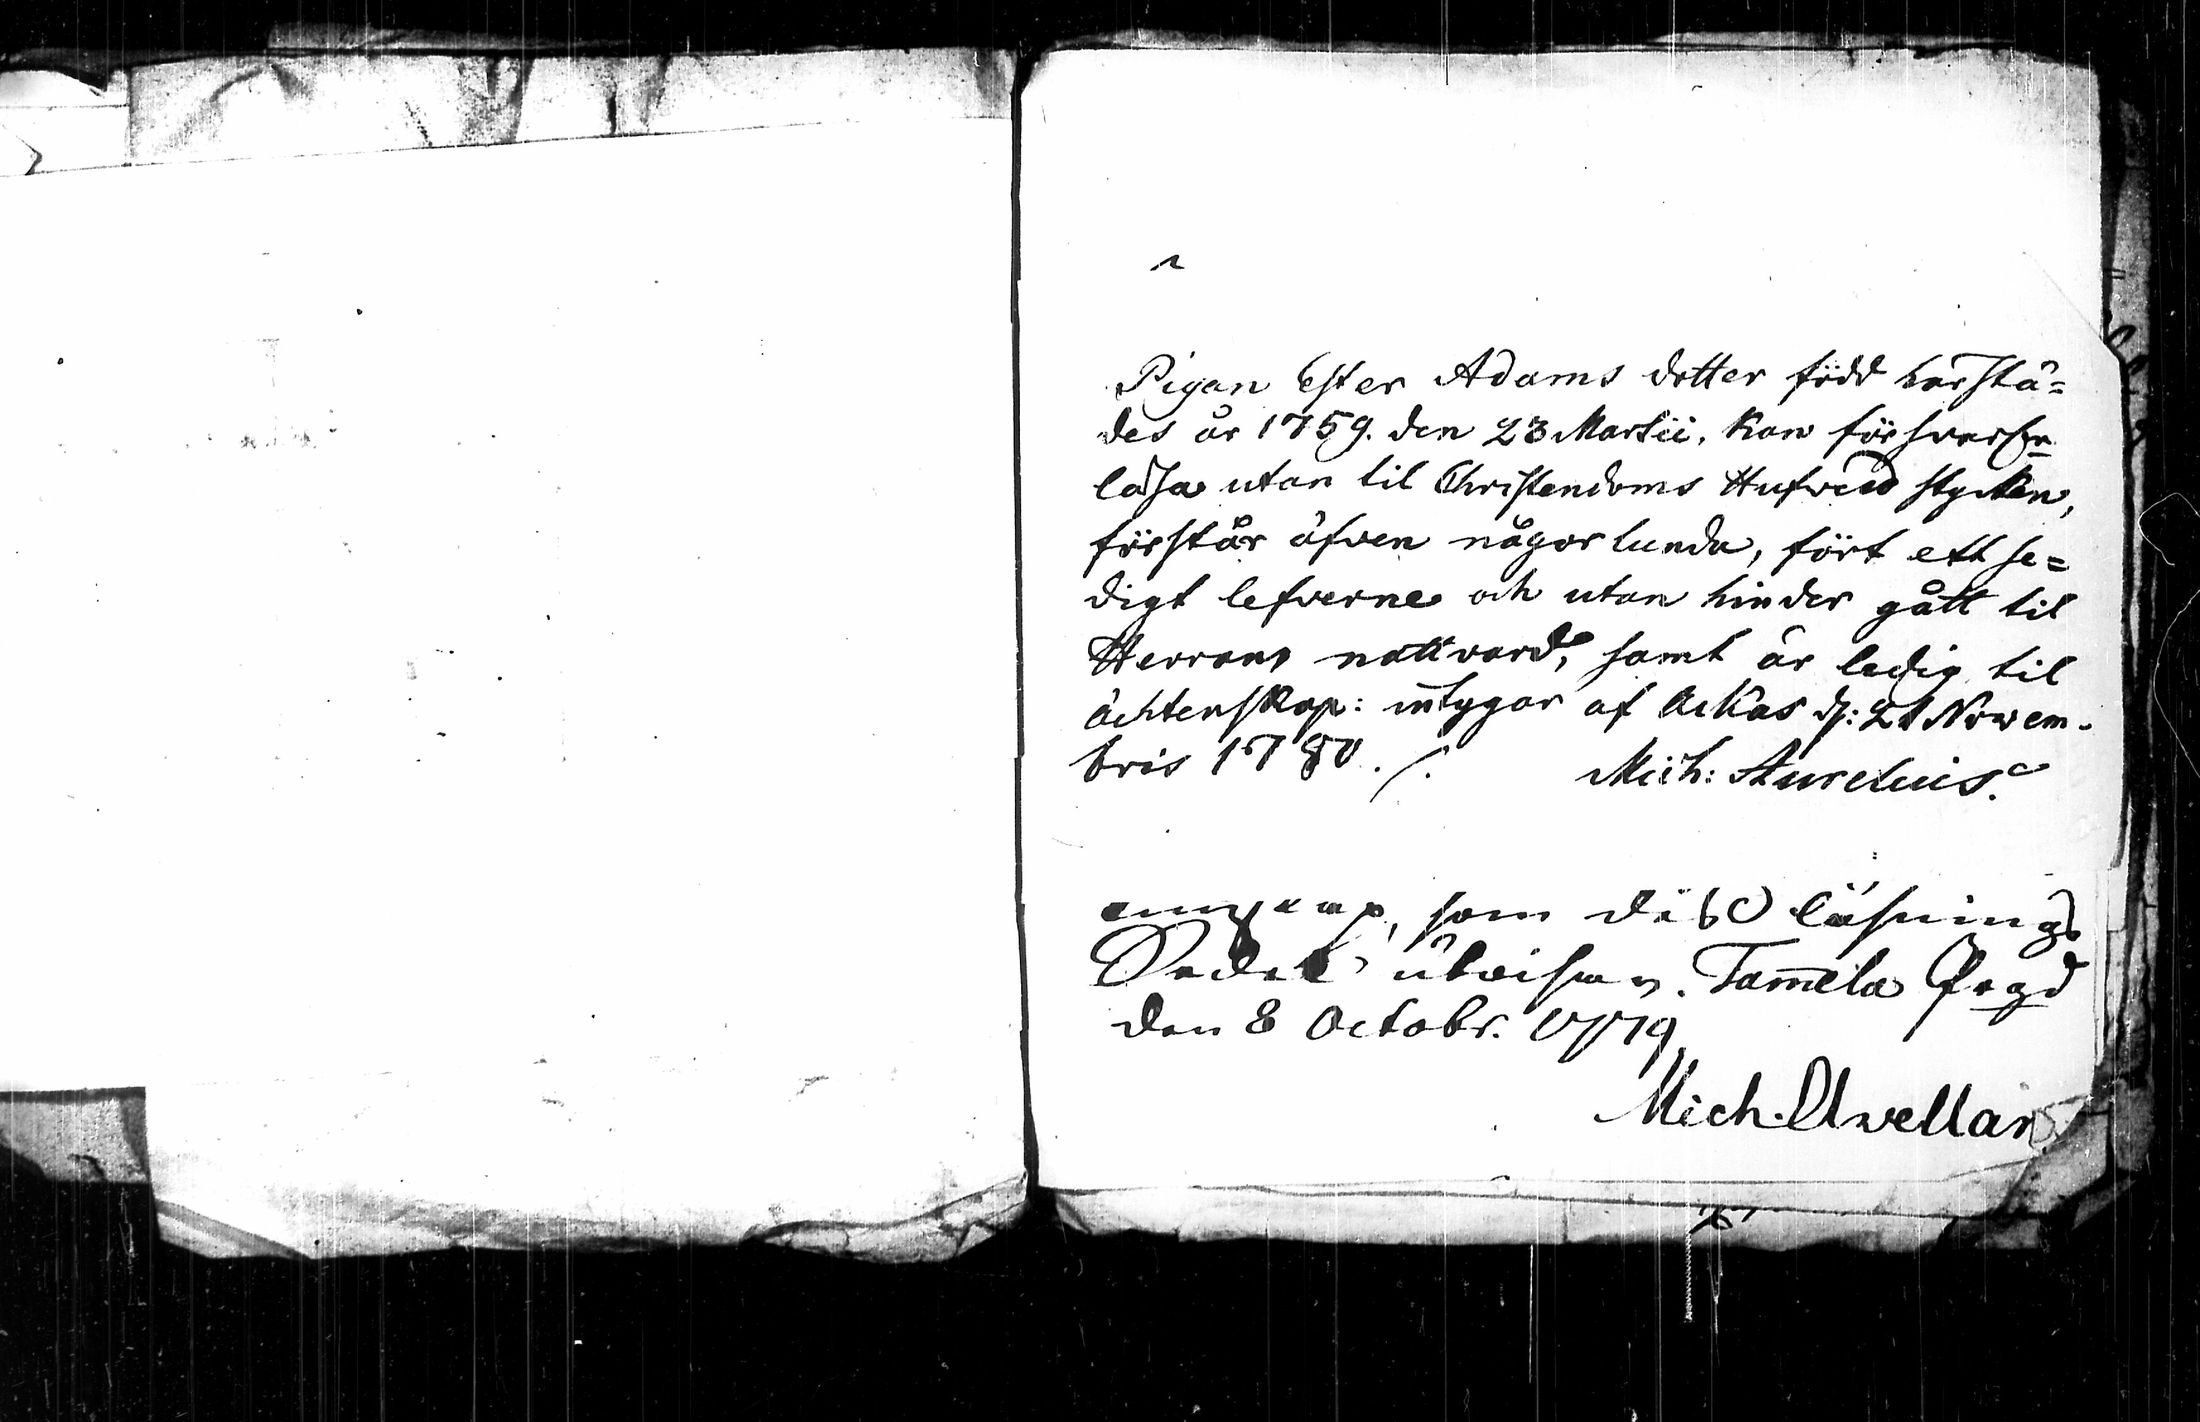 Pigan Ester Adams dotter född härstä=
des år 1759. den 23 Martii, kan försvarl.
läsa utan til Christendoms Hufwud stycken,
förstår äfven någorlunda, fört ett se=
digt lefverne och utan hinder gått til
Herrans nattvard, samt är ledig til
ächtenskap: intygar af Ackas d: 21 Novem-
bris 1780 ./. Mich: Aurelius.
som dess läsnings
Sedel utvisar. Tam̅ela Prgd
den 8 Octobr. 1779
Mich. Avellan